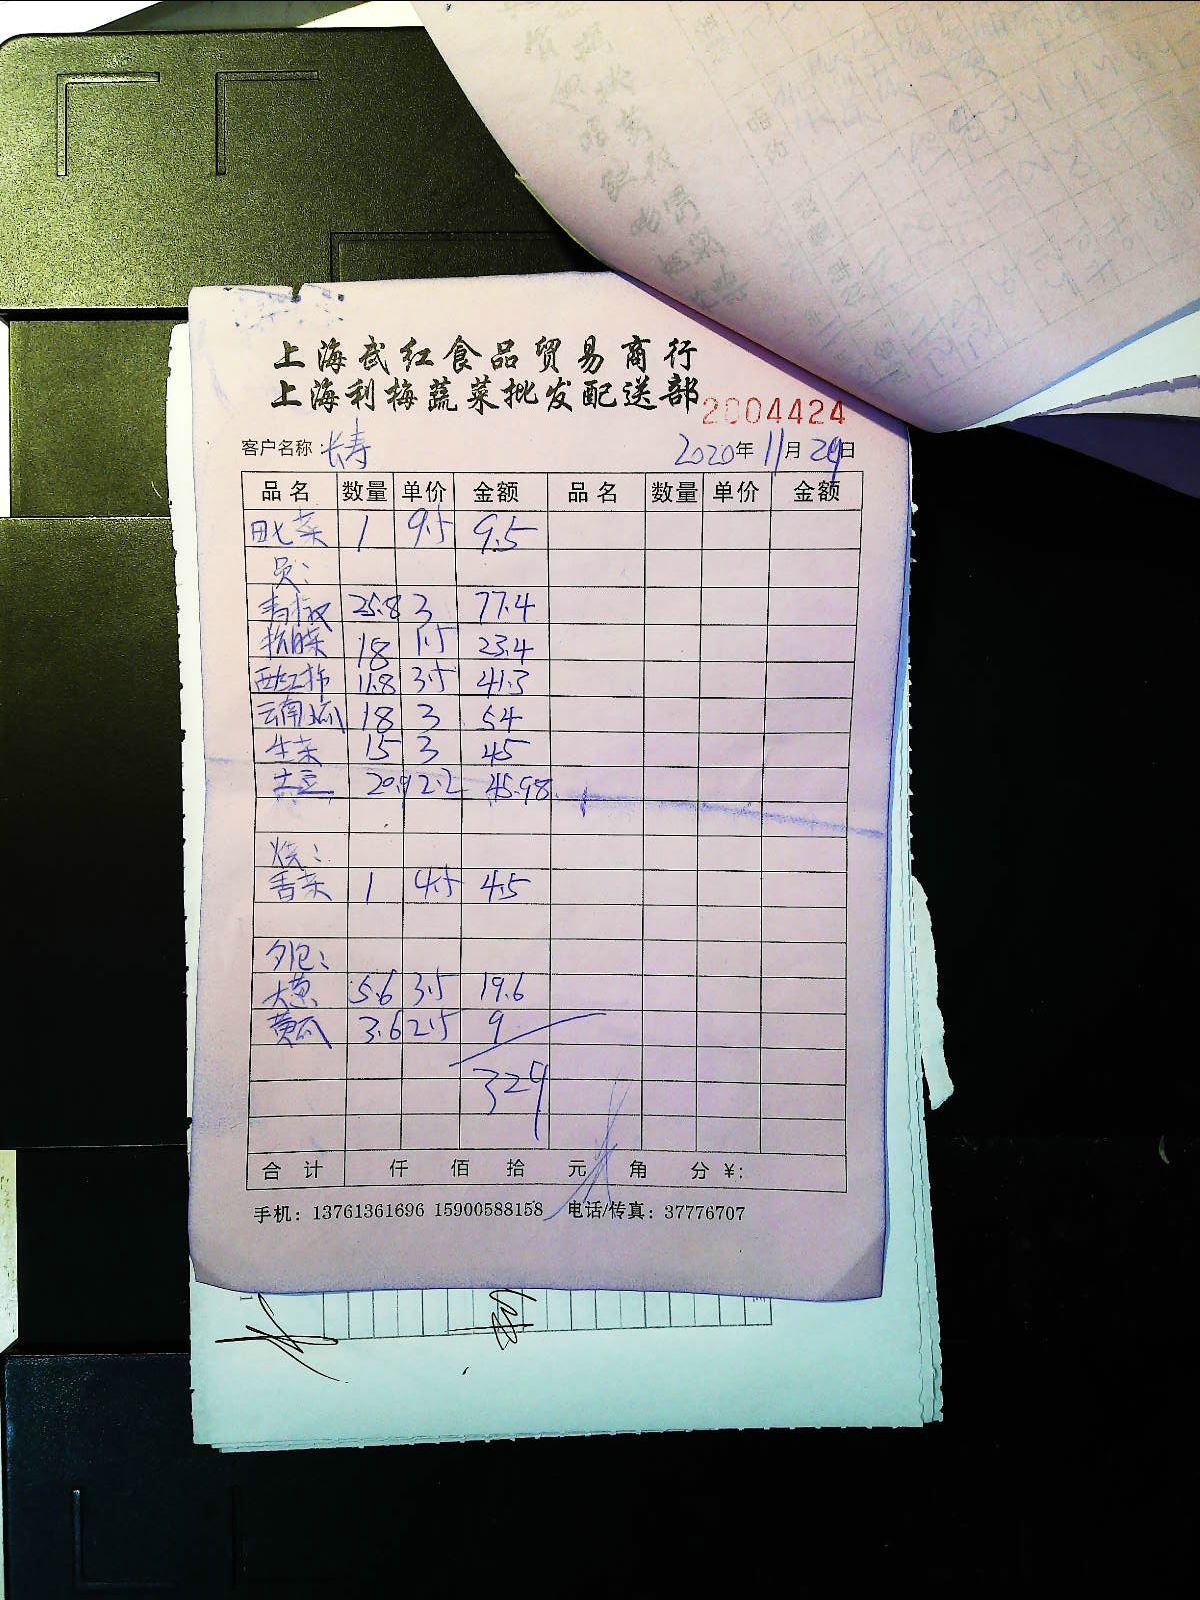 上海武红食品贸易商行
上海利梅蔬菜批发配送部 2004424
客户名称：长寿 2020年11月29日
品名 数量 单价 金额 品名 数量 单价 金额
1 9.5 9.5
员：
青椒 25.8 3 77.4
18 1.5 23.4
西红柿 11.8 3.5 41.3
云南瓜 18 3 54
生菜 15 3 45
土豆 20.9 2.2 45.98
烧：
香菜 1 4.5 4.5
大葱 5.6 3.5 19.6
黄瓜 3.6 2.5 9
329
合计 仟 佰 拾 元 角 分 ¥:
手机：13761361696 15900588158 电话/传真：37776707